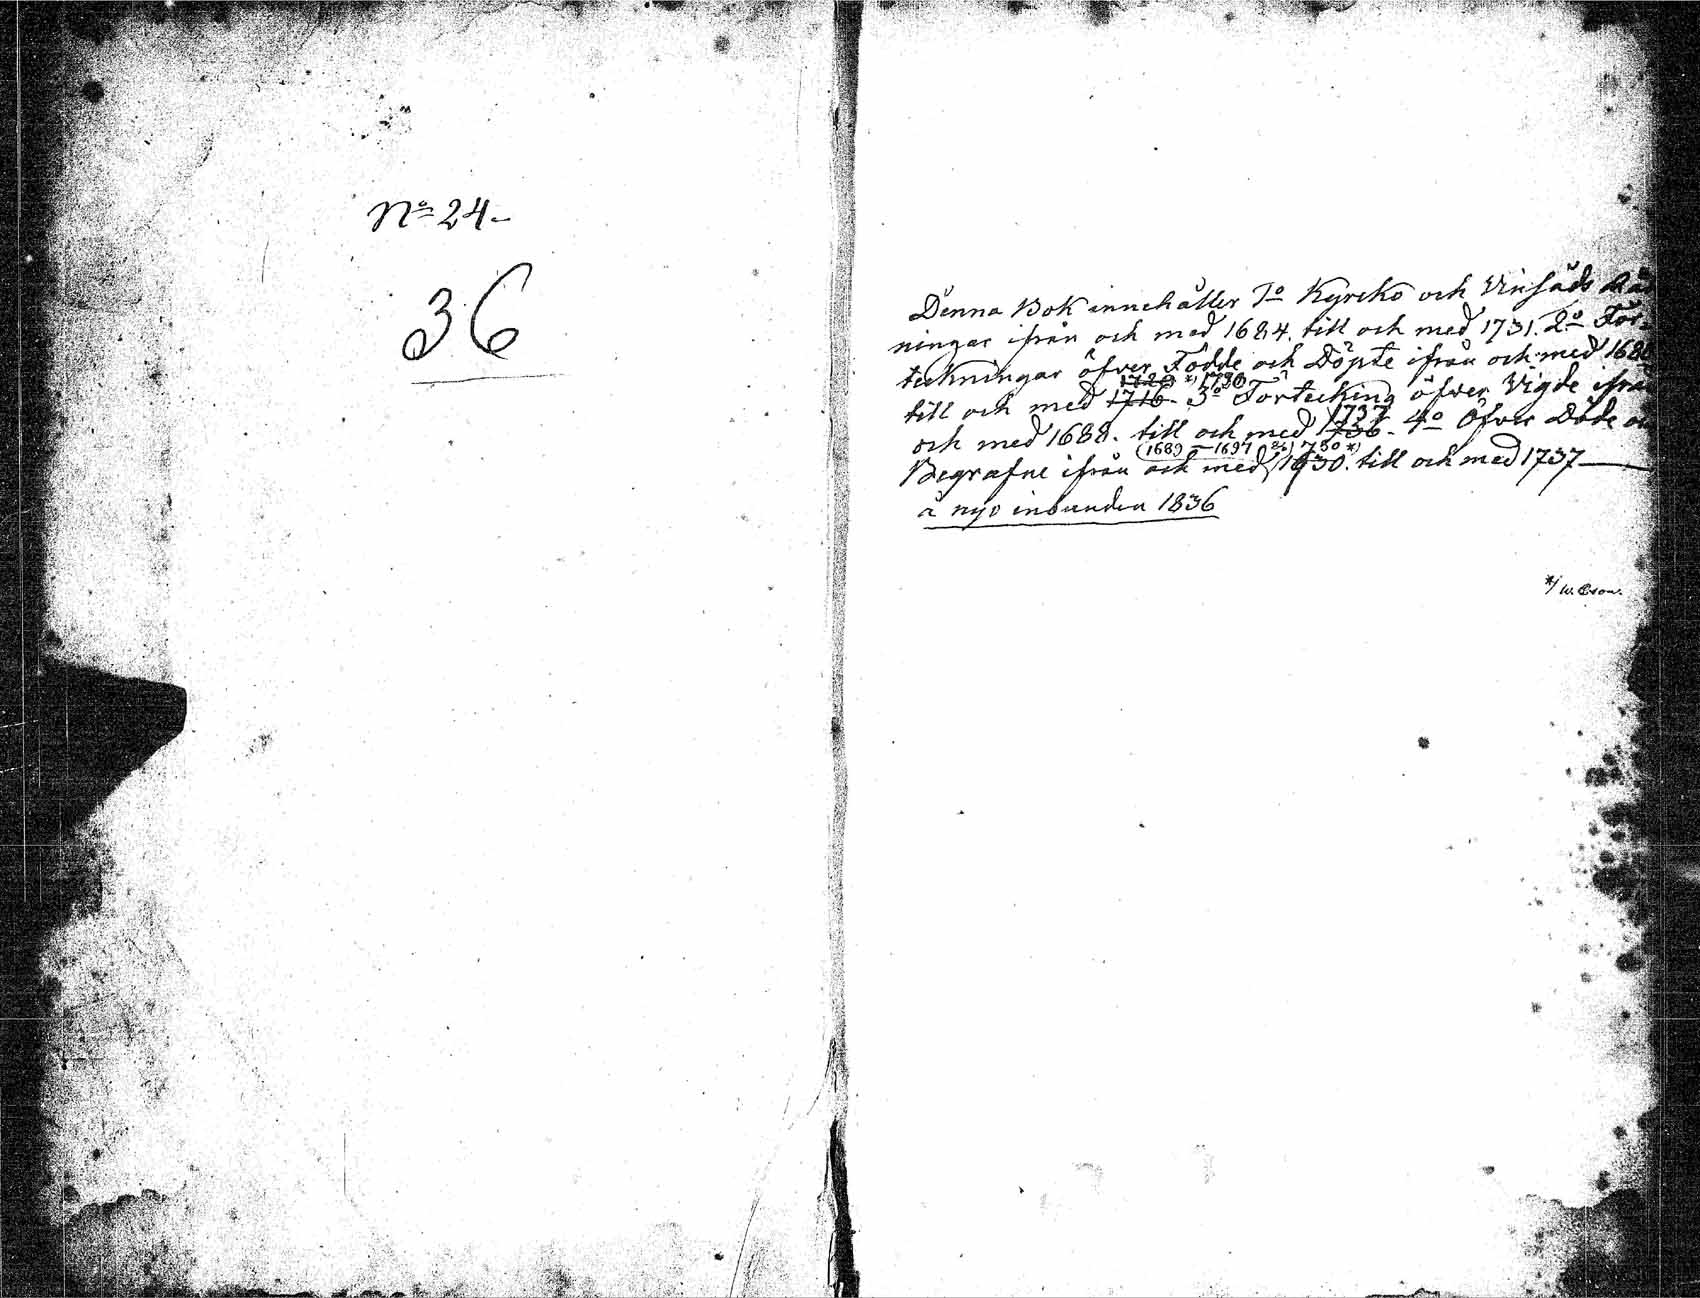 No 24-
36
Denna Bok innehåller 1o Kyrcko och Vinsäds Räk
ningar ifrån och med 1684. till och med 1731. 2o För-
teckningar öfver Födde och Döpte ifrån och med 1688
1720 *) 1730
till och med 1716. 3o Förteckning öfver Vigde ifrån
1737
och med 1688. till och med 1736. 4o Öfver Döde och
(1689 — 1697 &) 1730 *)
Begrafne ifrån och med 1930. till och med 1737
å nyo inbunden 1836
*)